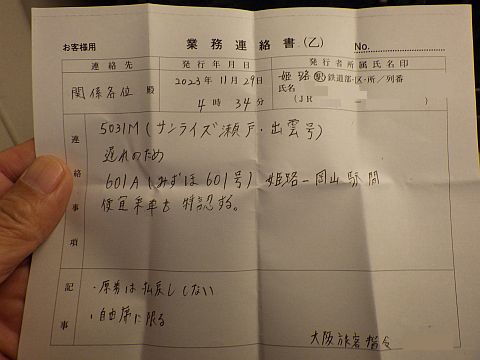 お客様用
業務連絡書(乙)
No.
連絡先
発行年月日
発行者所属氏名印
関係各位 殿
2023年11月29日
4時34分
姫路駅 鉄道部・区・所/列番
氏名
(JR )
連絡事項
5031M(サンライズ瀬戸・出雲号)
遅れのため
601A(みずほ601号)姫路ー岡山駅間
便宜乗車を特認する。
記事
・原券は払戻ししない
・自由席に限る
大阪旅客指令